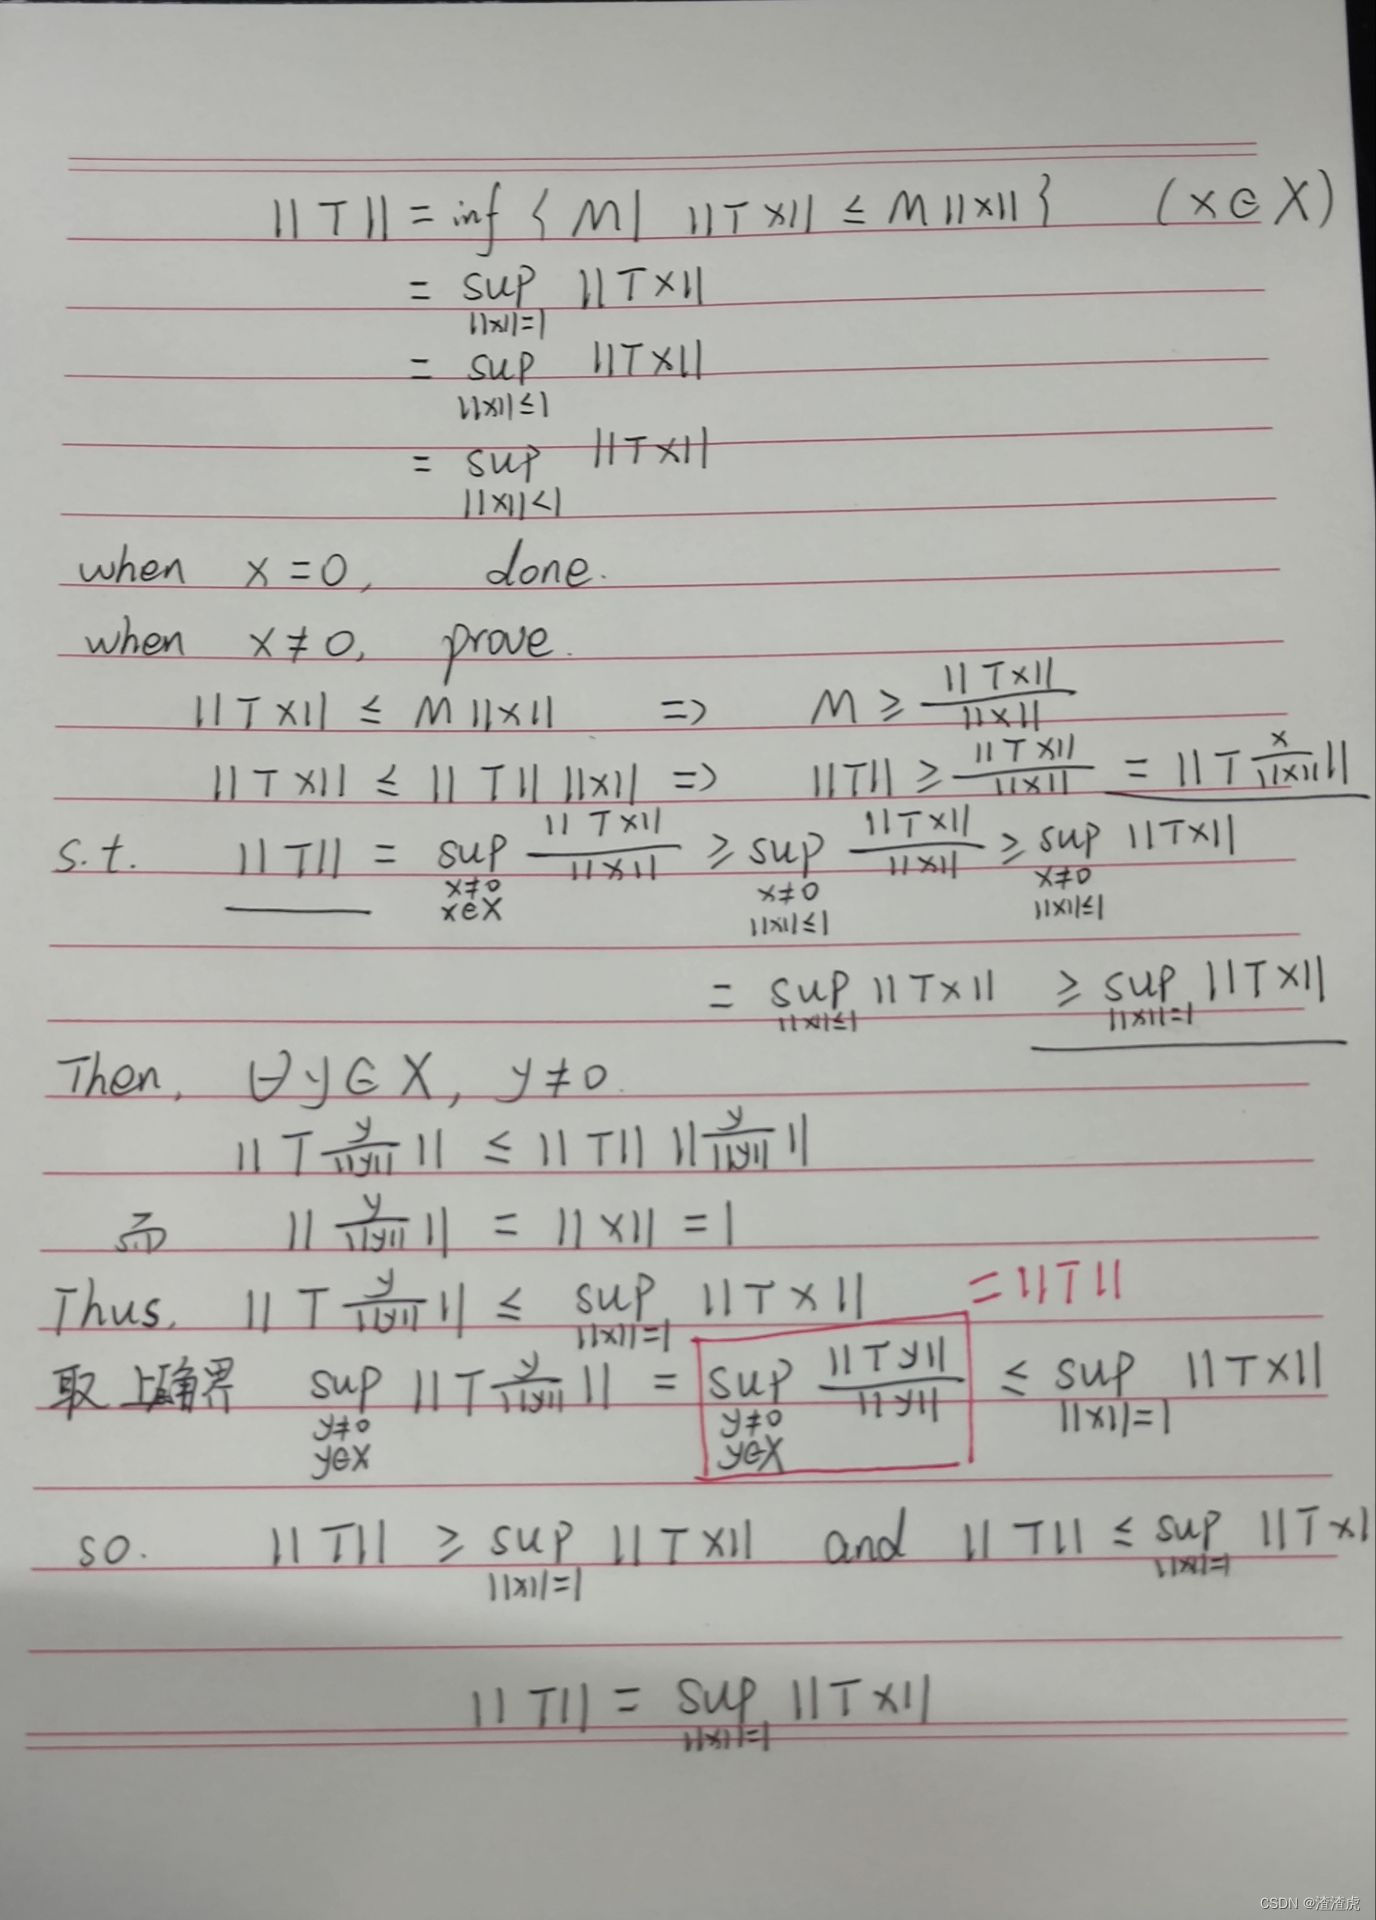 ||T|| = inf { M | ||Tx|| ≤ M||x|| } (x∈X)
= sup_{||x||=1} ||Tx||
= sup_{||x||≤1} ||Tx||
= sup_{||x||<1} ||Tx||
when x=0, done.
when x≠0, prove.
||Tx|| ≤ M||x|| => M ≥ ||Tx|| / ||x||
||Tx|| ≤ ||T|| ||x|| => ||T|| ≥ ||Tx|| / ||x|| = ||T x/||x|| ||
s.t. ||T|| = sup_{x≠0, x∈X} ||Tx|| / ||x|| ≥ sup_{x≠0, ||x||≤1} ||Tx|| / ||x|| ≥ sup_{x≠0, ||x||≤1} ||Tx||
= sup_{||x||≤1} ||Tx|| ≥ sup_{||x||=1} ||Tx||
Then, ∀y∈X, y≠0.
||T y/||y|| || ≤ ||T|| || y/||y|| ||
而 || y/||y|| || = ||x|| = 1
Thus, ||T y/||y|| || ≤ sup_{||x||=1} ||Tx|| = ||T||
取上确界 sup_{y≠0, y∈X} ||T y/||y|| || = sup_{y≠0, y∈X} ||Ty|| / ||y|| ≤ sup_{||x||=1} ||Tx||
so. ||T|| ≥ sup_{||x||=1} ||Tx|| and ||T|| ≤ sup_{||x||=1} ||Tx|
||T|| = sup_{||x||=1} ||Tx||
CSDN @渣渣虎